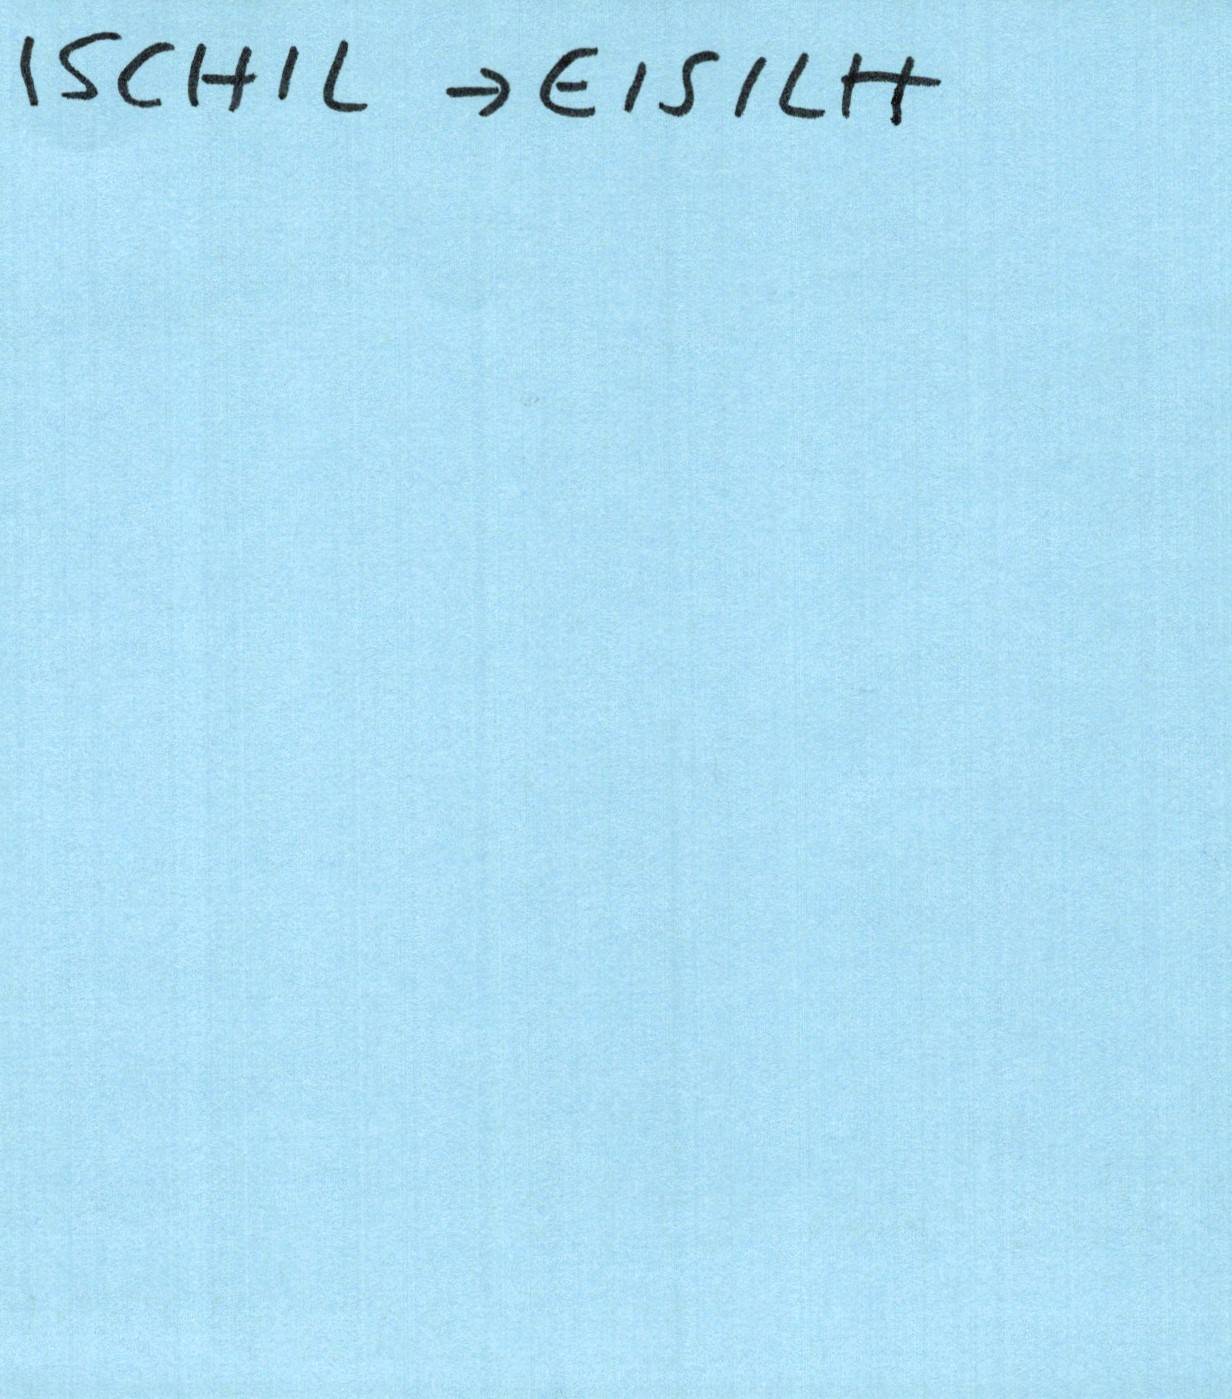 ISCHIL → EISILH